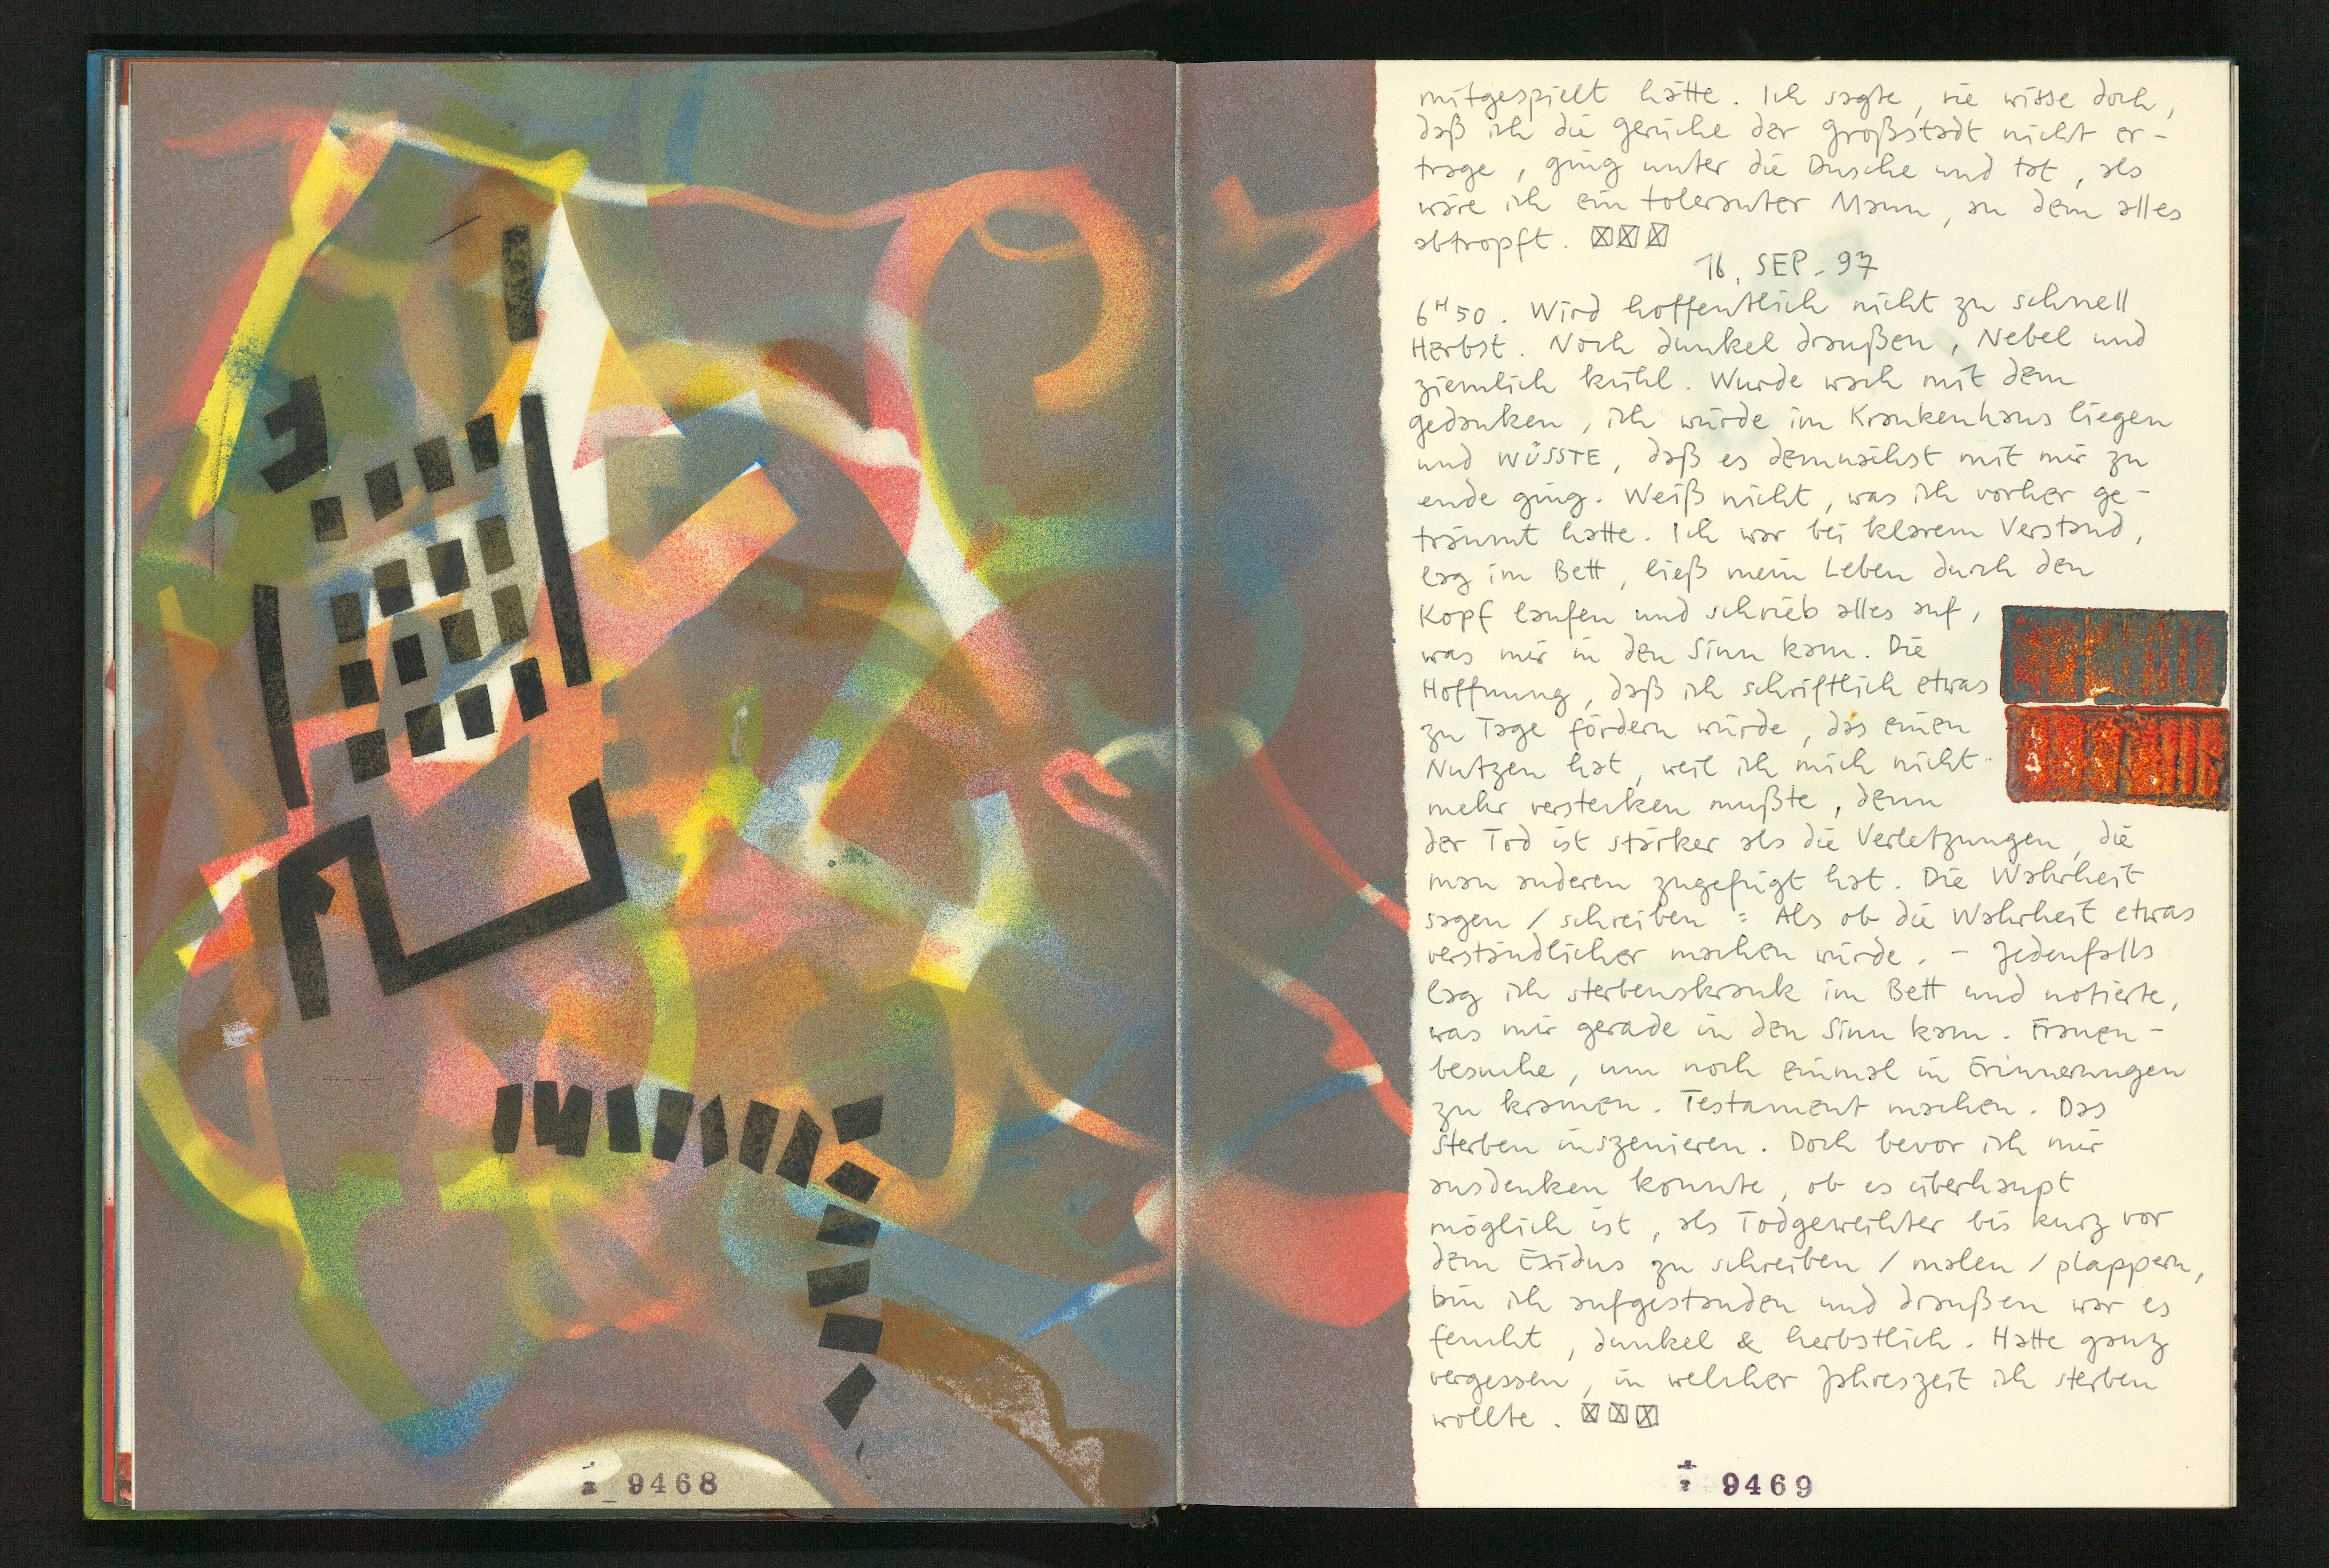 mitgespielt hätte. Ich sagte, sie wisse doch,
daß ich die gerüche der großstadt nicht er-
trage, ging unter die Dusche und tat, als
wäre ich ein toleranter Mann, an dem alles
abtropft. ☒☒☒
16. SEP. 97
6H50. Wird hoffentlich nicht zu schnell
Herbst. Noch dunkel draußen, Nebel und
ziemlich kühl. Wurde wach mit dem
gedanken, ich würde im Krankenhaus liegen
und WÜSSTE, daß es demnächst mit mir zu
ende ging. Weiß nicht, was ich vorher ge-
träumt hatte. Ich war bei klarem Verstand,
lag im Bett, ließ mein Leben durch den
Kopf laufen und schrieb alles auf,
was mir in den Sinn kam. Die
Hoffnung, daß ich schriftlich etwas
zu Tage fördern würde, das einen
Nutzen hat, weil ich mich nicht
mehr verstecken mußte, denn
der Tod ist stärker als die Verletzungen, die
man anderen zugefügt hat. Die Wahrheit
sagen / schreiben : Als ob die Wahrheit etwas
verständlicher machen würde. - Jedenfalls
lag ich sterbenskrank im Bett und notierte,
was mir gerade in den Sinn kam. Frauen-
besuche, um noch einmal in Erinnerungen
zu kramen. Testament machen. Das
sterben inszenieren. Doch bevor ich mir
ausdenken konnte, ob es überhaupt
möglich ist, als Todgeweihter bis kurz vor
dem Exidus zu schreiben / malen / plappern,
bin ich aufgestanden und draußen war es
feucht, dunkel & herbstlich. Hatte ganz
vergessen, in welcher Jahreszeit ich sterben
wollte. ☒☒☒
9468
9469